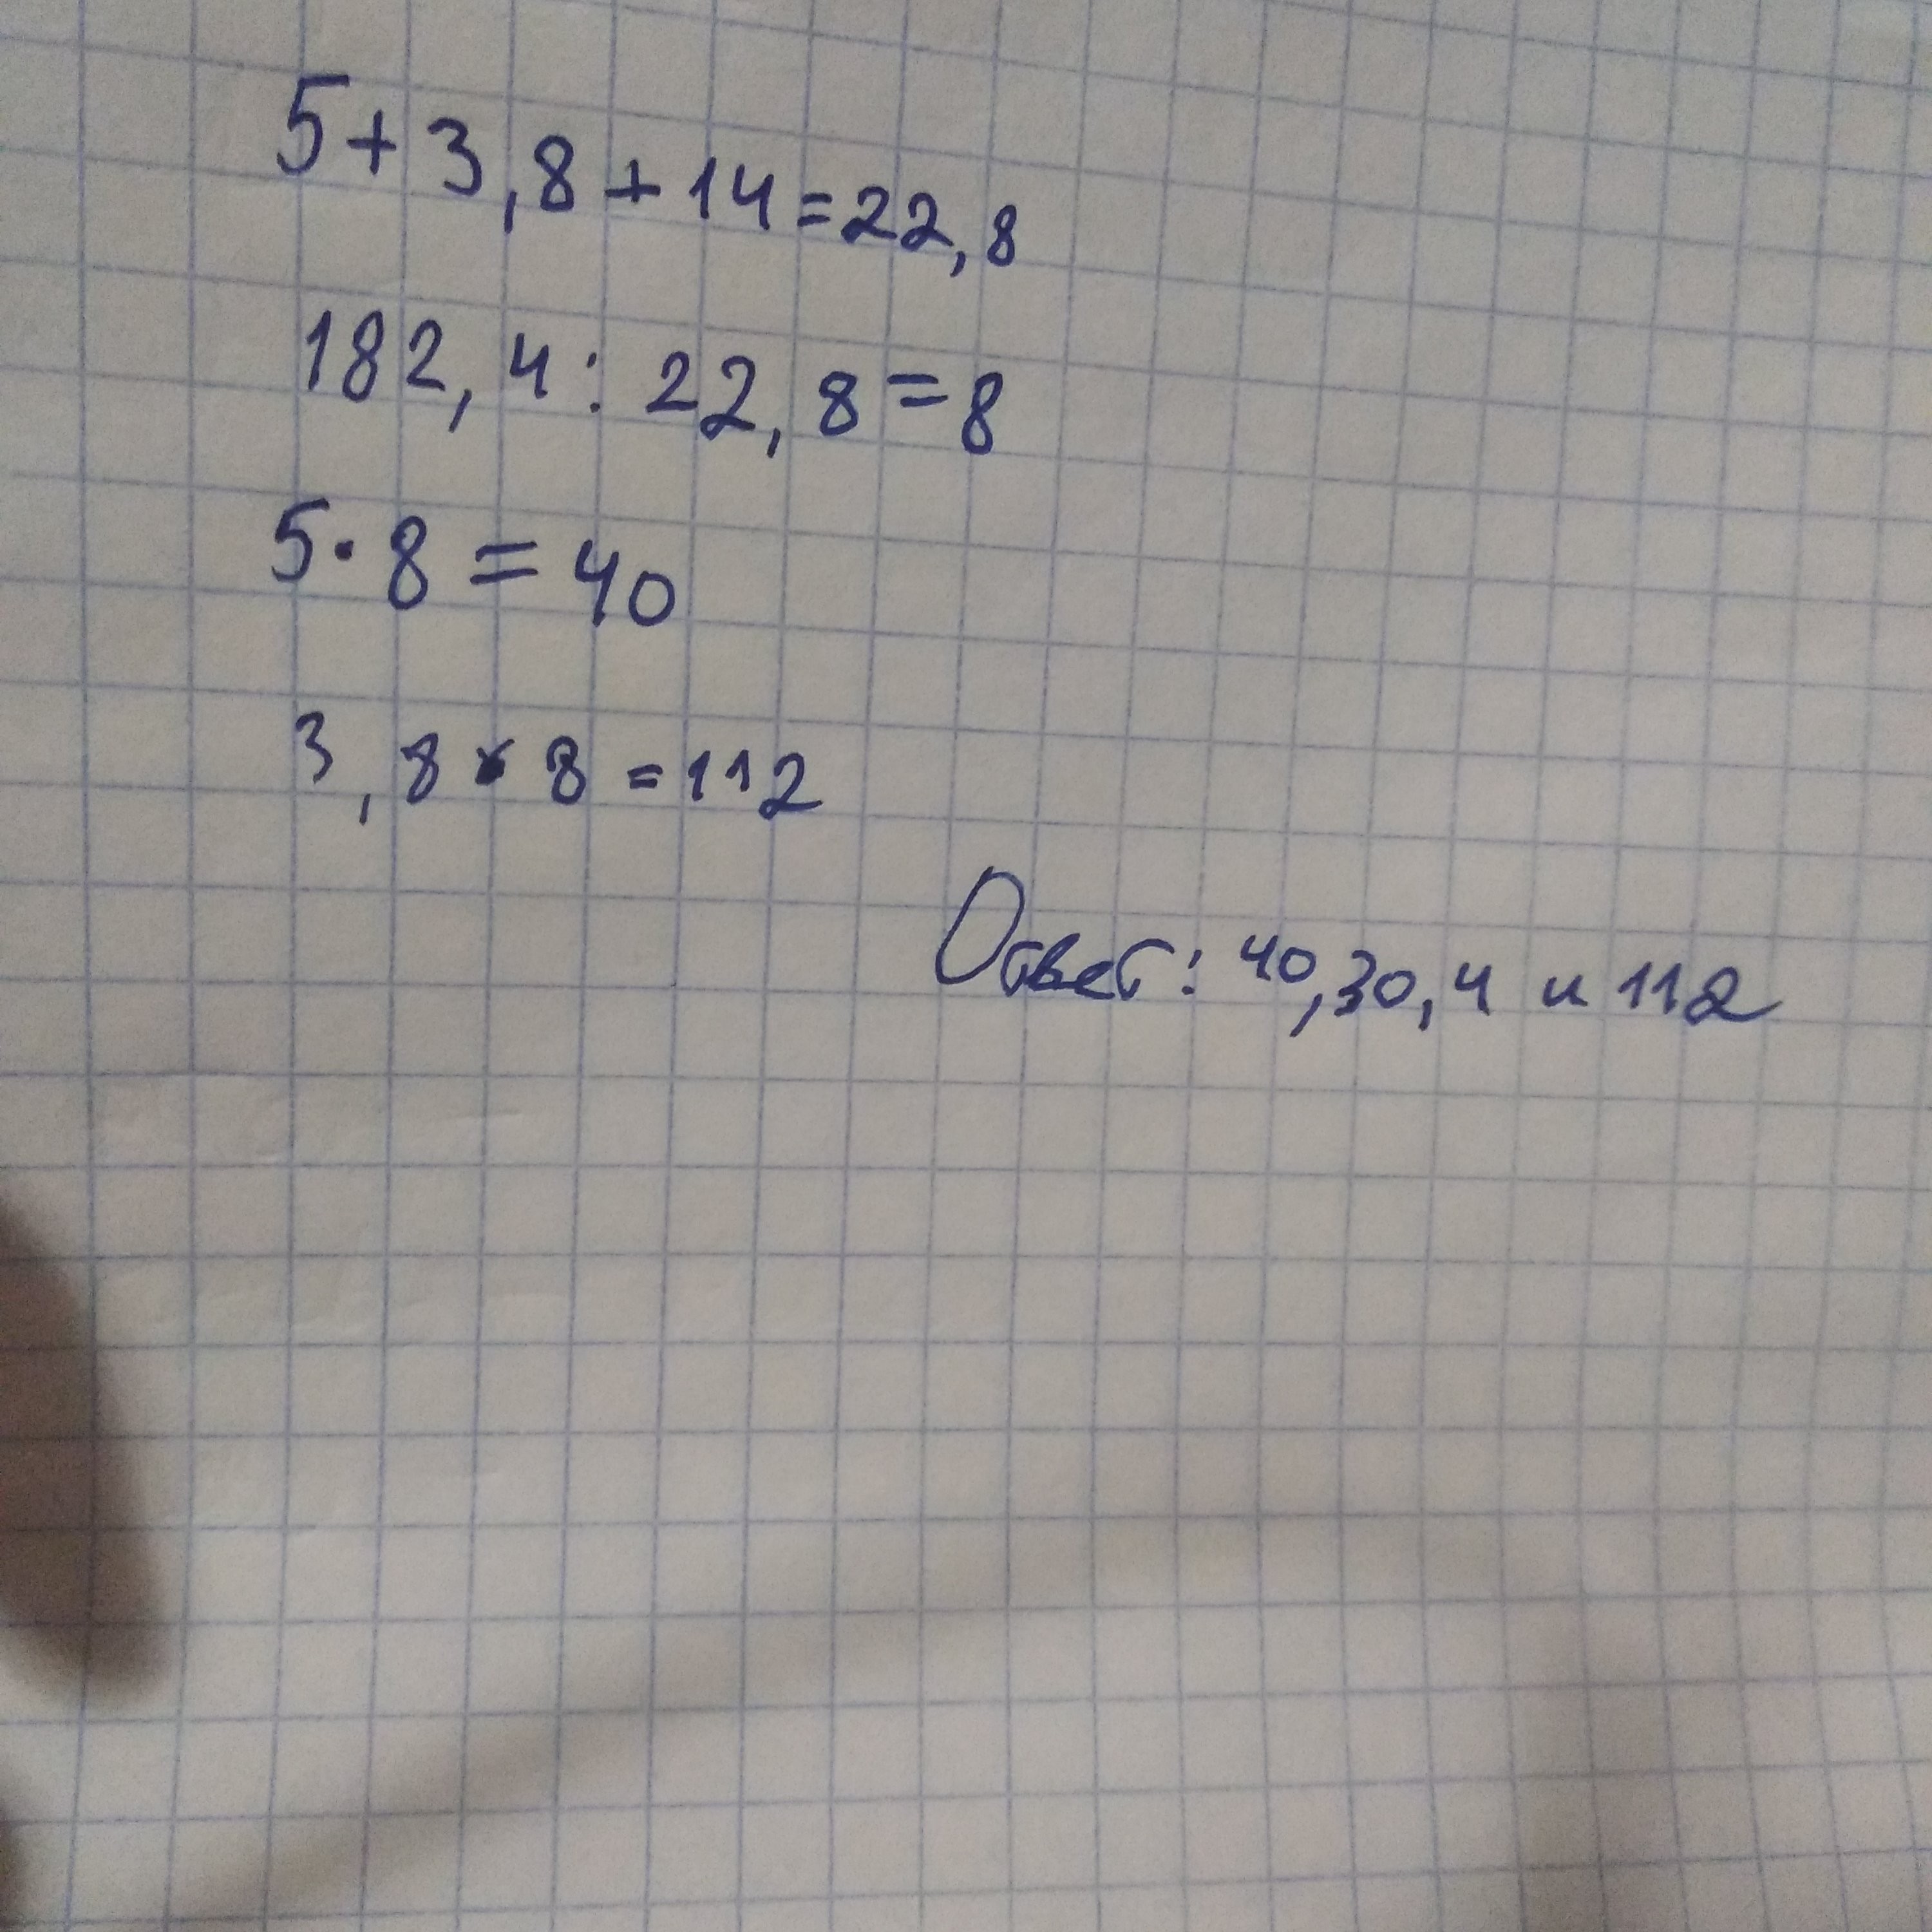 5+3,8+14=22,8
182,4:22,8=8
5·8=40
3,8·8=112
Ответ: 40,30,4 и 112